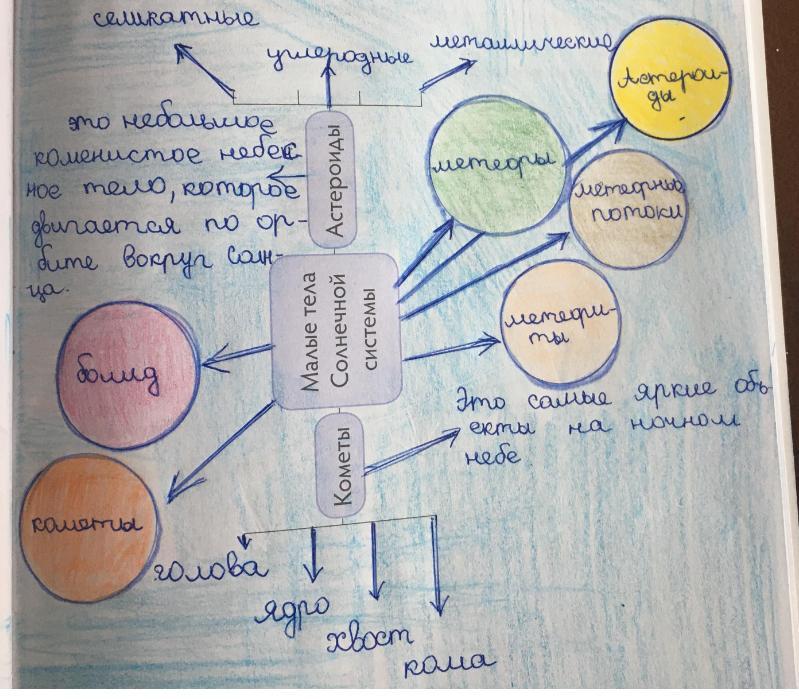 селикатные
углеродные
металлические
Астерои-
ды
это небольшое
каменистое небес-
ное тело, которое
двигается по ор-
бите вокруг Солн-
ца.
Астероиды
метеоры
метеорные
потоки
Малые тела
Солнечной
системы
метеори-
ты
болид
Кометы
Это самые яркие объ-
екты на ночном
небе
кометы
голова
ядро
хвост
кома